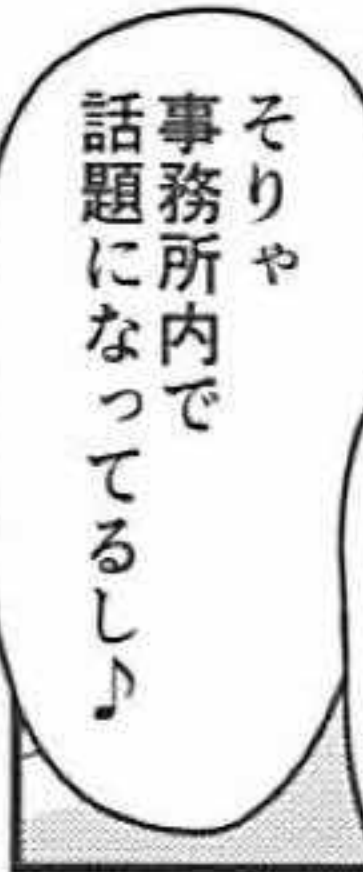 そりゃ
事務所内で
話題になってるし♪